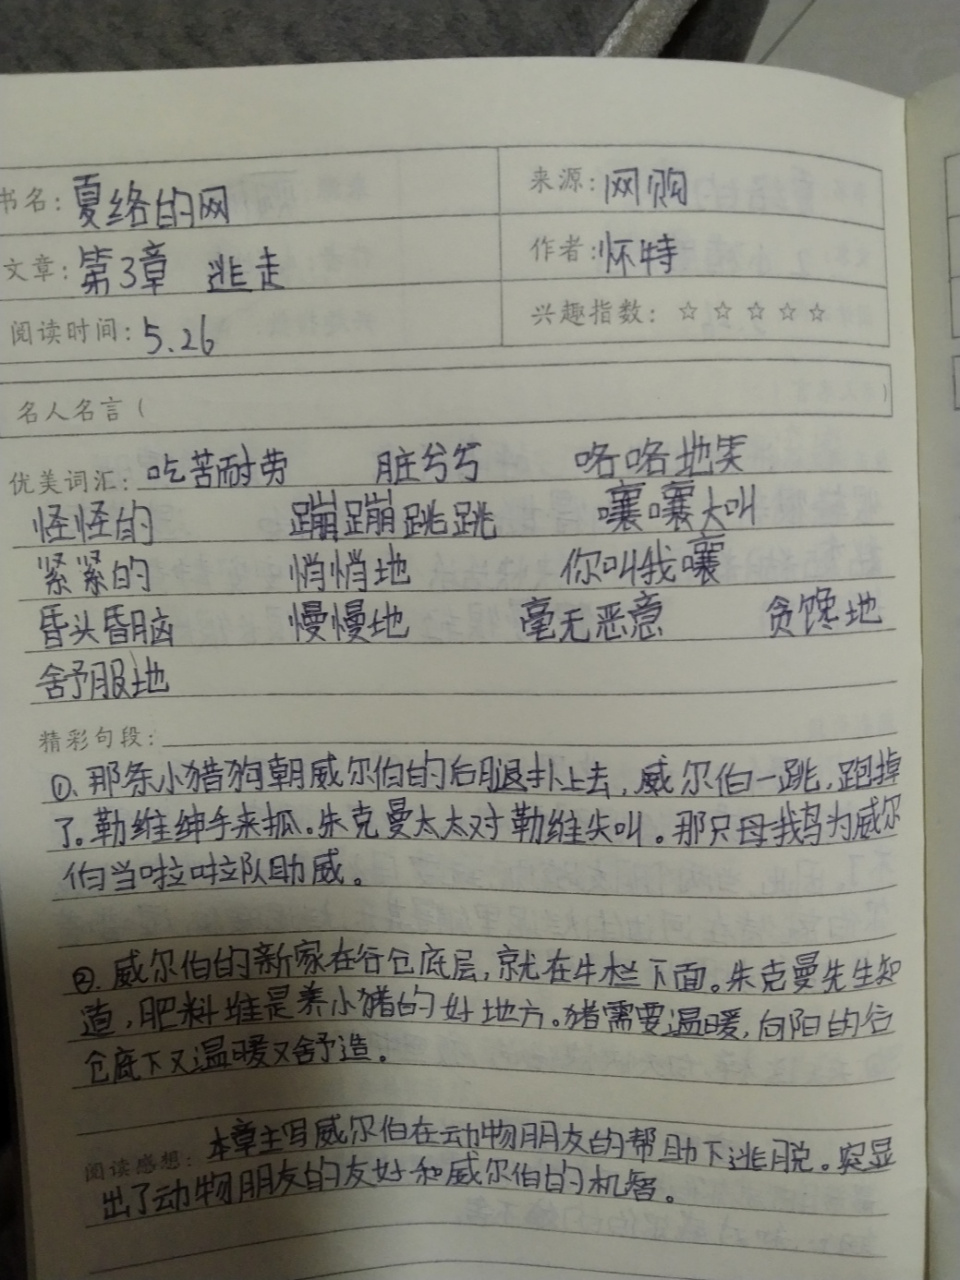 书名: 夏络的网 来源: 网购
文章: 第3章 逃走 作者: 怀特
阅读时间: 5.26 兴趣指数: ☆ ☆ ☆ ☆ ☆
名人名言 ( )
优美词汇: 吃苦耐劳 脏兮兮 咯咯地笑
怪怪的 蹦蹦跳跳 嚷嚷大叫
紧紧的 悄悄地 你叫我嚷
昏头昏脑 慢慢地 毫无恶意 贪馋地
舒服地
精彩句段:
①. 那条小猎狗朝威尔伯的后腿扑上去, 威尔伯一跳, 跑掉
了。勒维绅手来抓。朱克曼太太对勒维尖叫。那只母我鸟为威尔
伯当啦啦队助威。
②. 威尔伯的新家在谷仓底层, 就在牛栏下面。朱克曼先生知
道, 肥料堆是养小猪的好地方。猪需要温暖, 向阳的谷
仓底下又温暖又舒造。
阅读感想: 本章主写威尔伯在动物朋友的帮助下逃脱。突显
出了动物朋友的友好和威尔伯的机智。